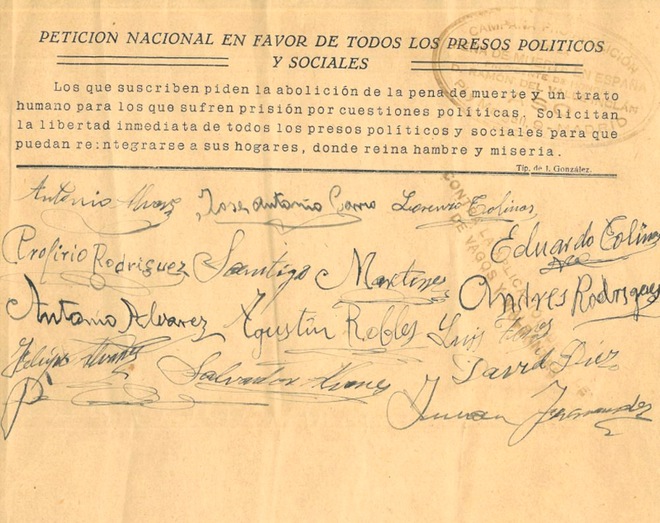 PETICION NACIONAL EN FAVOR DE TODOS LOS PRESOS POLITICOS
Y SOCIALES
Los que suscriben piden la abolición de la pena de muerte y un trato
humano para los que sufren prisión por cuestiones políticas. Solicitan
la libertad inmediata de todos los presos políticos y sociales para que
puedan re:ntegrarse a sus hogares, donde reina hambre y miseria.
Tip. de J. González.
Antonio Jose Antonio Lorenzo Colinas
Eduardo Colinas
Profirio Rodriguez Santiago Martinez
Andres Rodrigues
Antonio Alvarez Agustin Robles Luis
Felipe
Salvador David Diez
Juan Fernandez
PENA DE MUERTE EN ESPAÑA
CONTRA LA
DE VAGOS Y